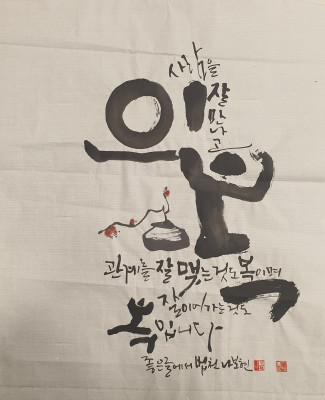 인복
사람을
잘 만나고
관계를 잘 맺는것도 복이며
잘 이어가는것도
복입니다
좋은글에서 법천 나보현